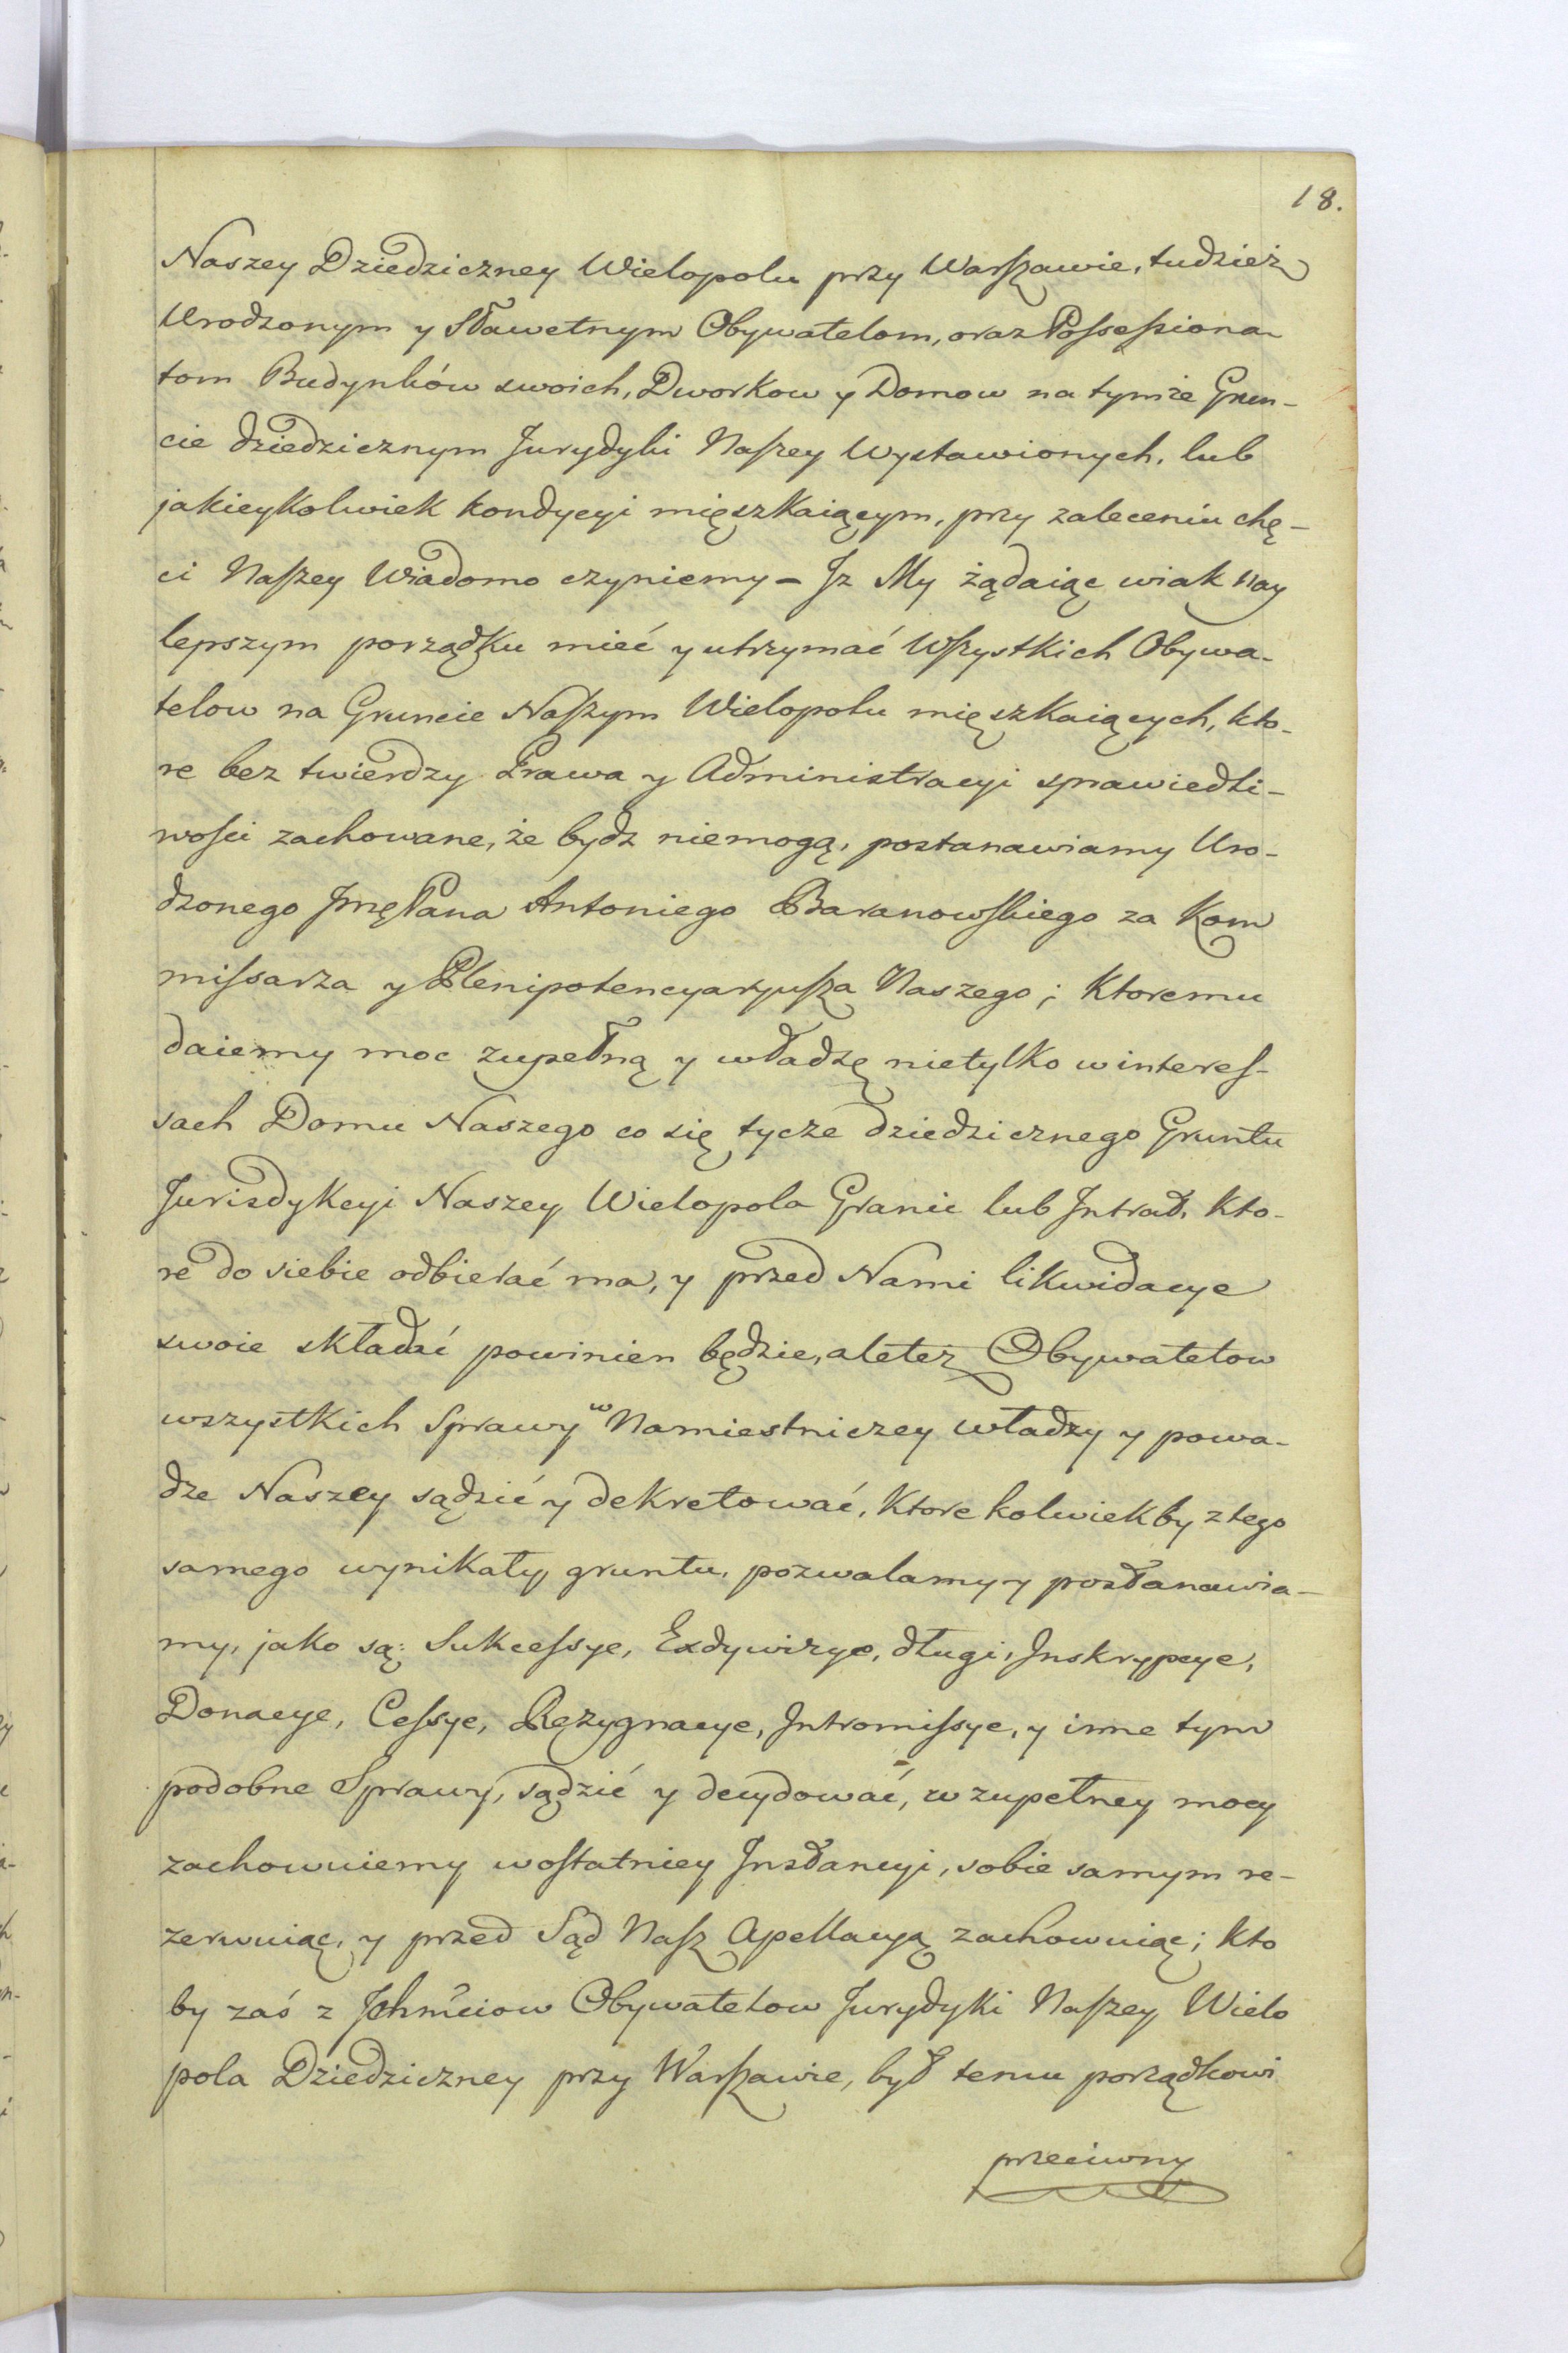 18.
Naszey Dziedziczney Wielopolu przy Warszawie, tudzież
Urodzonym y Sławetnym Obywatelom, oraz Possessiona-
tom Budynków swoich, Dworkow y Domow na tymże Grun-
cie dziedzicznym Jurydyki Naszey Wystawionych, lub
jakieykolwiek kondycyi mięszkaiącym, przy zaleceniu chę-
ci Naszey Wiadomo czyniemy - Jz My żądaiąc wiak nay
lepszym porządku mieć y utrzymać Wszystkich Obywa-
telow na Gruncie Naszym Wielopolu mięszkaiących, kto-
re bez twierdzy Prawa y Administracyi sprawiedli-
wości zachowane, że bydz niemogą, postanawiamy Uro-
dzonego Jmć Pana Antoniego Baranowskiego za Kom
missarza y Plenipotencyaryusza Naszego; Ktoremu
daiemy moc zupełną y władzę nietylko w interes-
sach Domu Naszego co się tycze dziedzicznego Gruntu
Jurisdykcyi Naszey Wielopola Granic lub Jntrat, kto-
re do siebie odbierać ma, y przed Nami likwidacye
swoie składać powinien będzie, aleteż Obywatelow
wszystkich Sprawy w Namiestniczey władzy y powa-
dze Naszey sądzić y dekretować, Ktore kolwiekby z tego
samego wynikały gruntu, pozwalamy y postanawia-
my, jako są: Sukcessye, Exdywizye, długi, Jnskrypcye,
Donacye, Cessye, Rezygnacye, Jntromissye, y inne tym
podobne Sprawy, sądzić y decydować, w zupełney mocy
zachowuiemy w ostatniey Jnstancyi, sobie samym re-
zerwuiąc, y przed Sąd Nasz Apellacyą zachowuiąc; kto
by zaś z Jchmciow Obywatelow Jurydyki Naszey Wielo
pola Dziedziczney przy Warszawie, był temu porządkowi
przeciwny